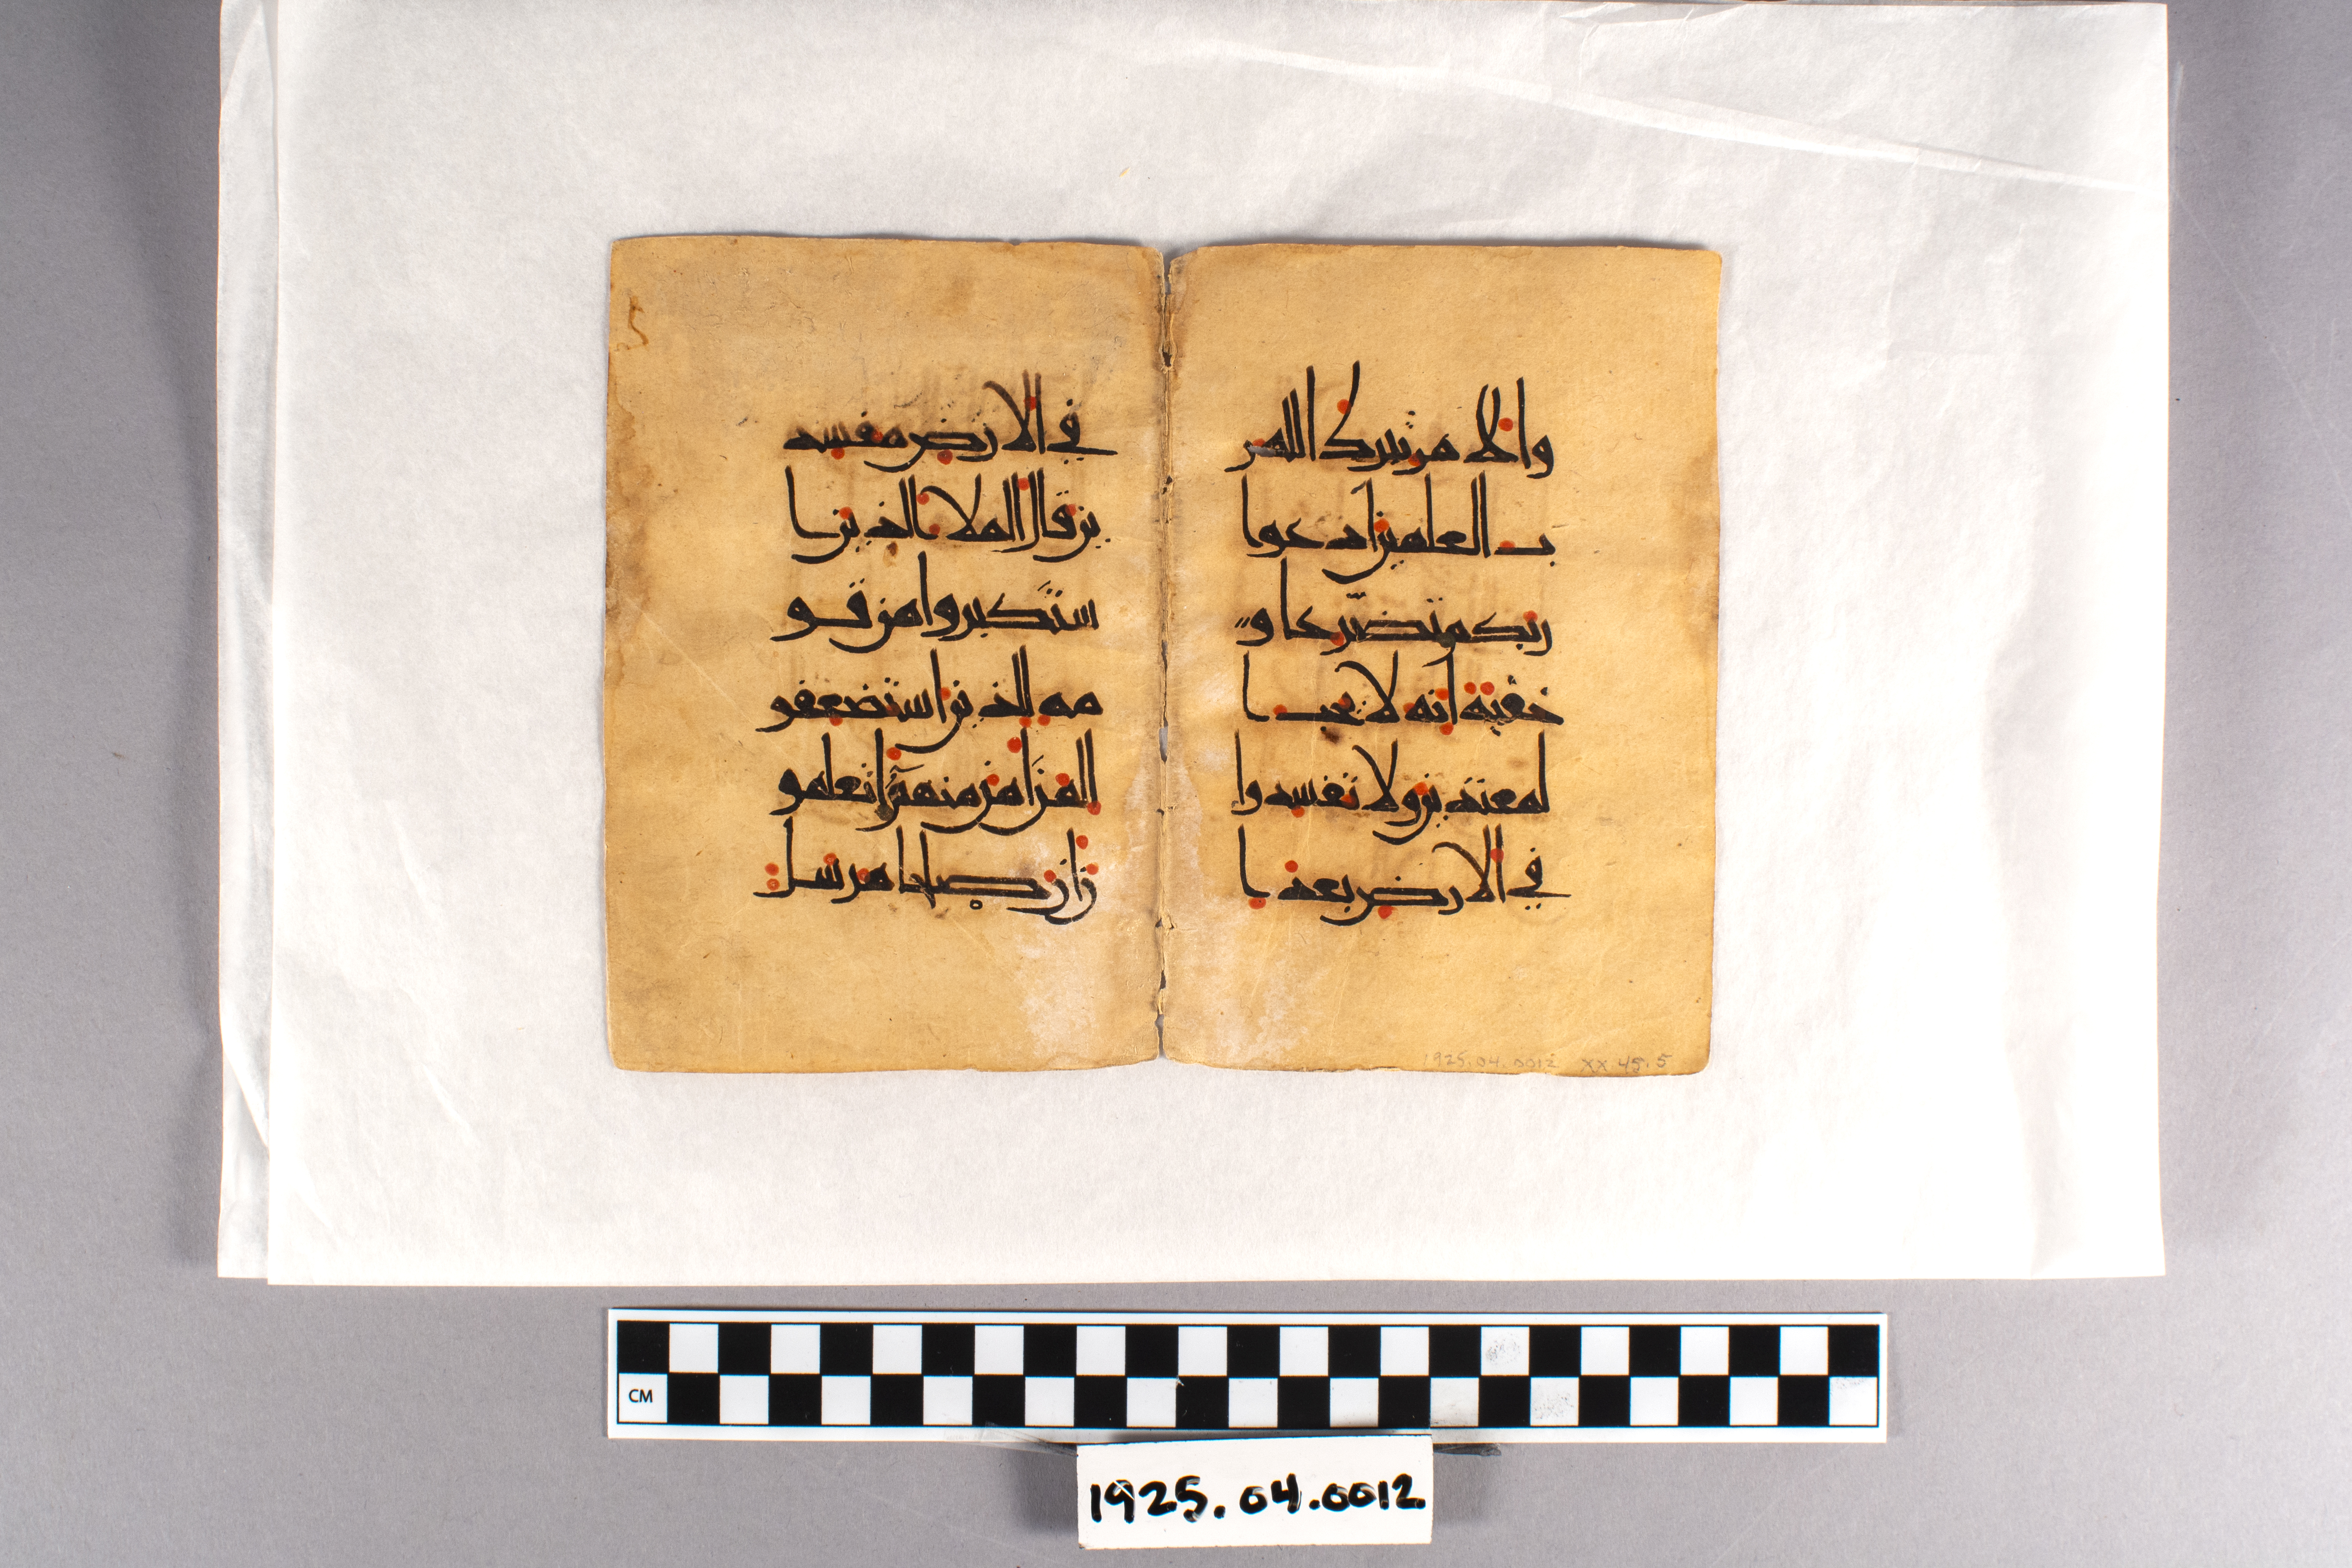 والامر تبرك الله ر
ب العلمين ادعوا
ربكم تضرعا و
خفية انه لا يحب ا
لمعتدين ولا تفسدوا
في الارض بعد ا
في الارض مفسد
ين قال الملا الذين ا
ستكبروا من قو
مه للذين استضعفو
ا لمن امن منهم اتعلمو
ن ان صلحا مرسل
1925.04.0012 XX 48.5
CM
1925.04.0012